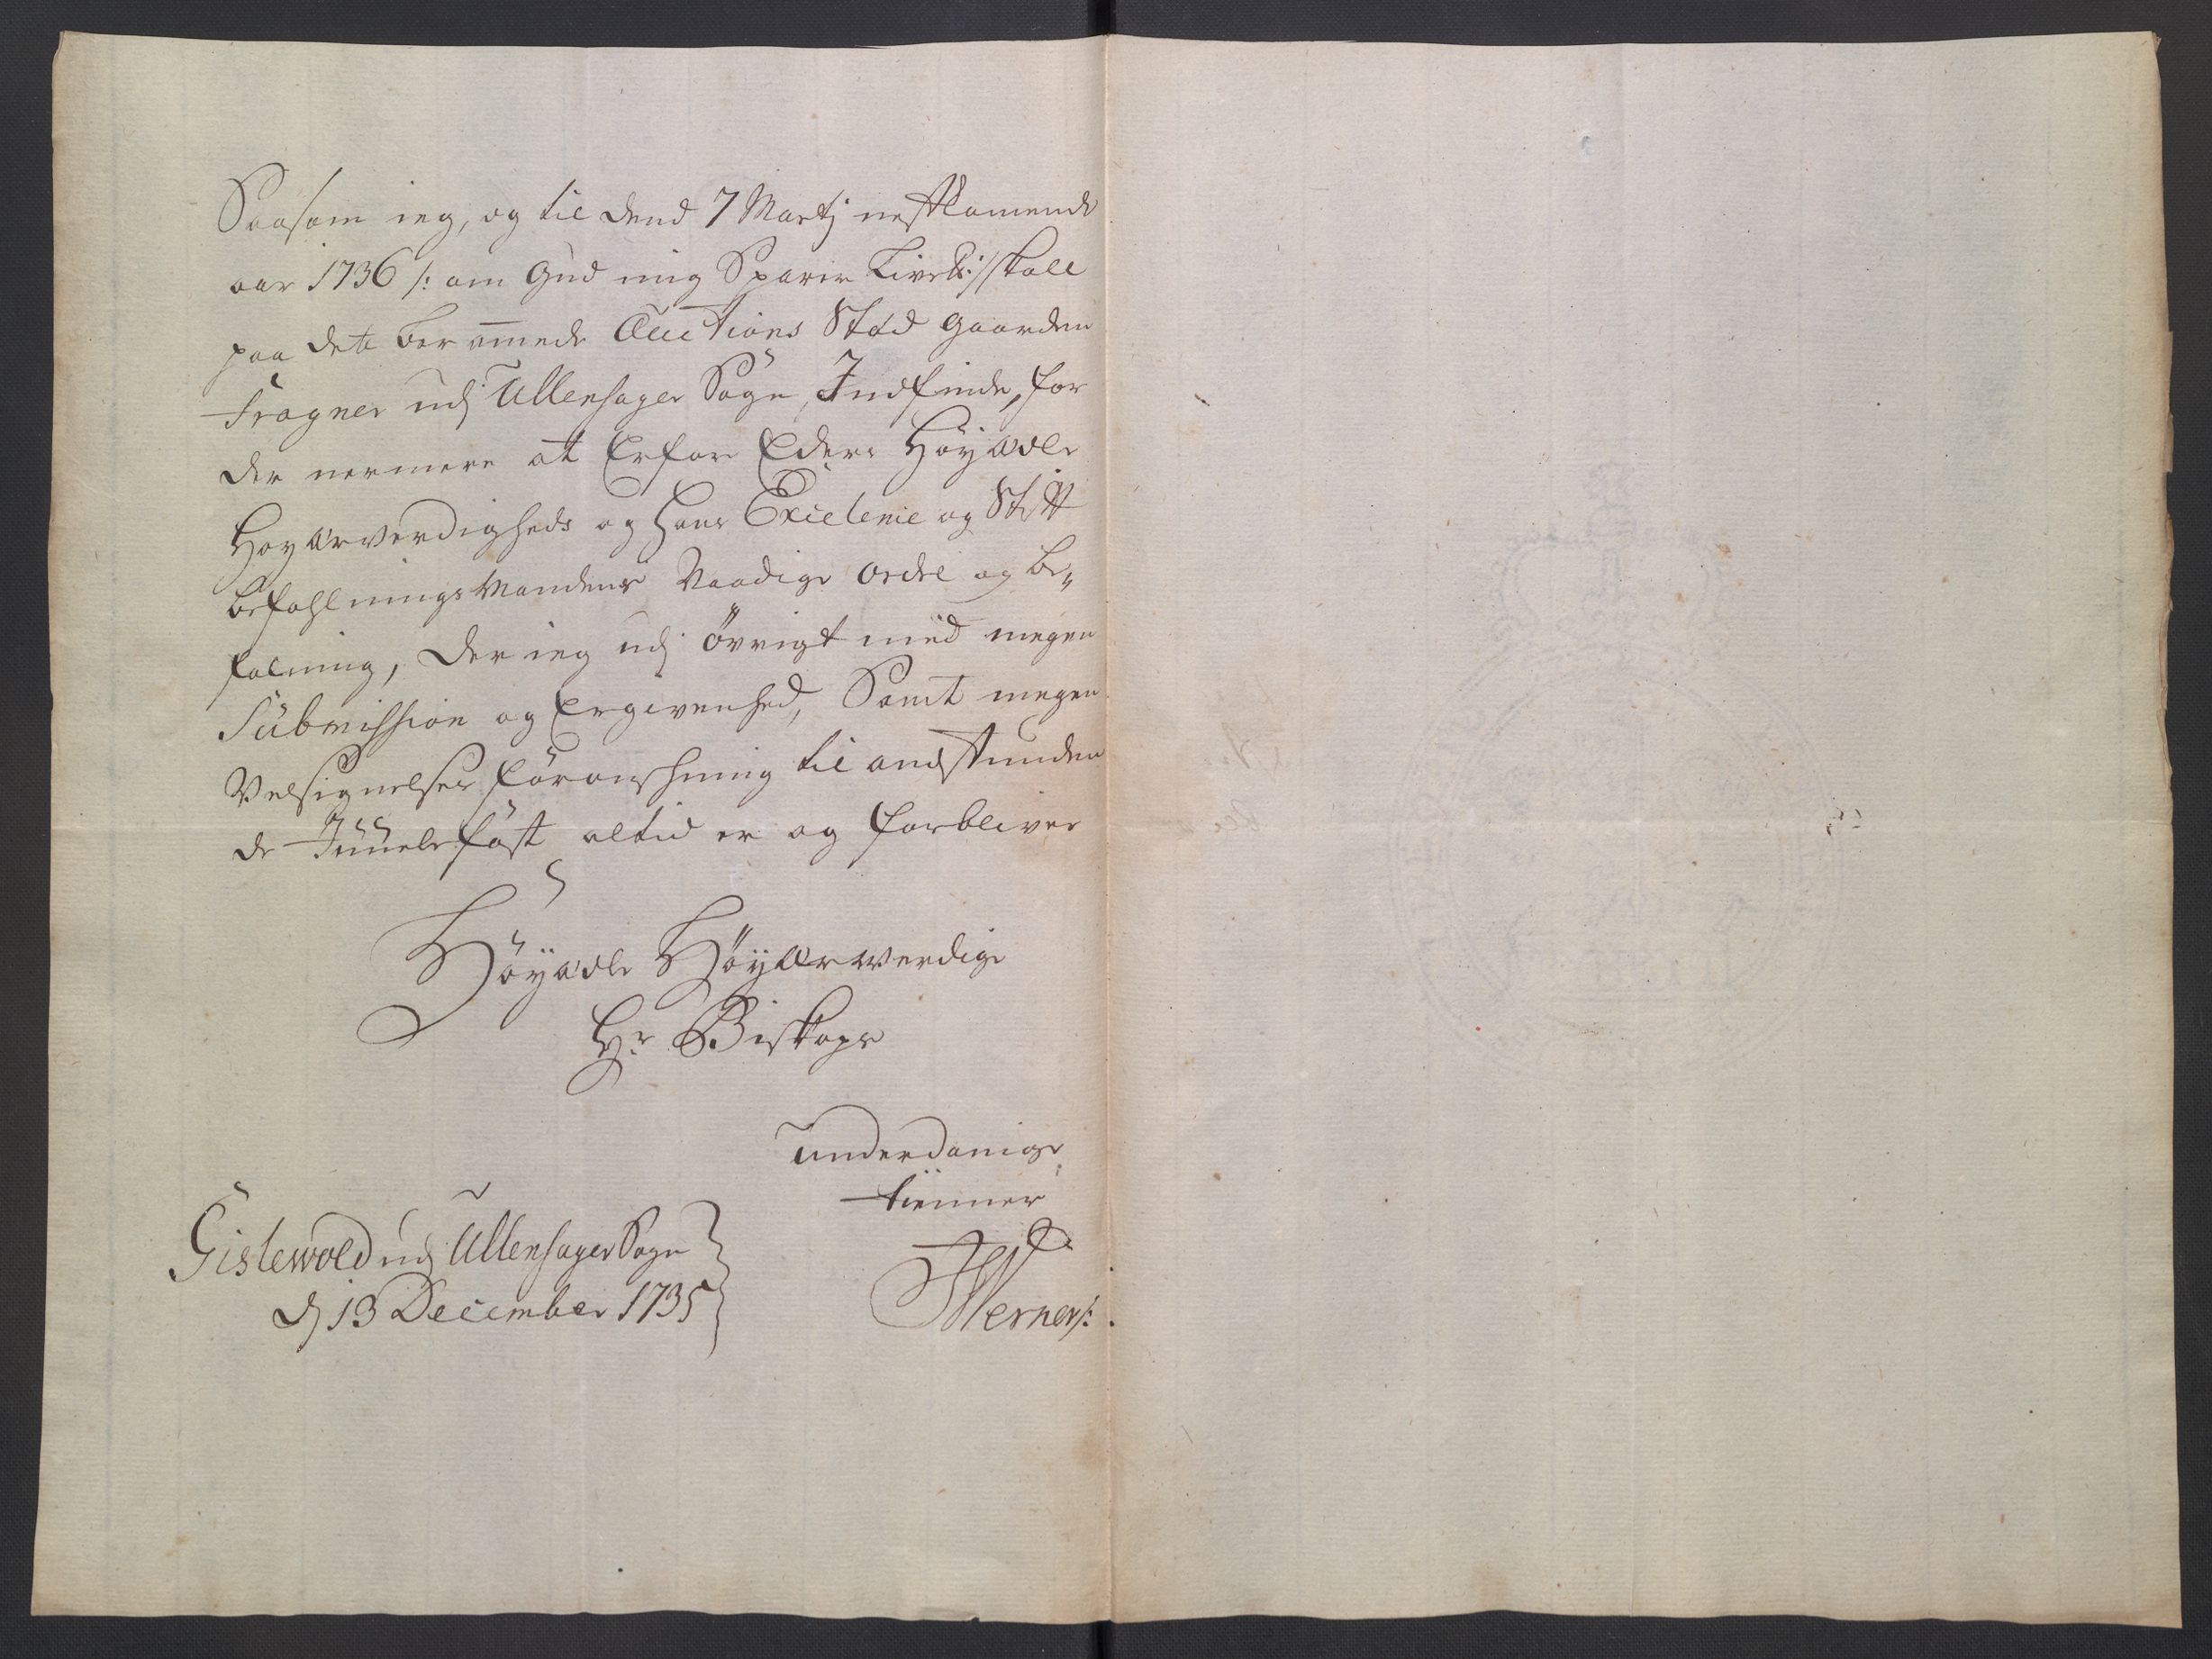 Saasom ieg, og til dend 7 Martj nestkomende
aar 1736 /: om Gud mig Sparer Livet :/ skall
paa dete beramede Auctions Stæd gaarden
Frogner udj Ullensager Sogn, Indfinde, for
der nermere at Erfare Eders Höyædle
Höyærverdigheds og Hans Excelence og Stift
befahlningsMandens Naadige ordre og be„
falning, der ieg udj övrigt med megen
Submission og Ergivenhed, Samt megen
Velsignelses forønschning til anstunden
de Juule fæst altid er og forbliver
Höyædle Höyærwerdige
Hr Biskops
underdanige
tienner
Gislewold udj Ullensager Sogn
dj 13 December 1735
Werner/: